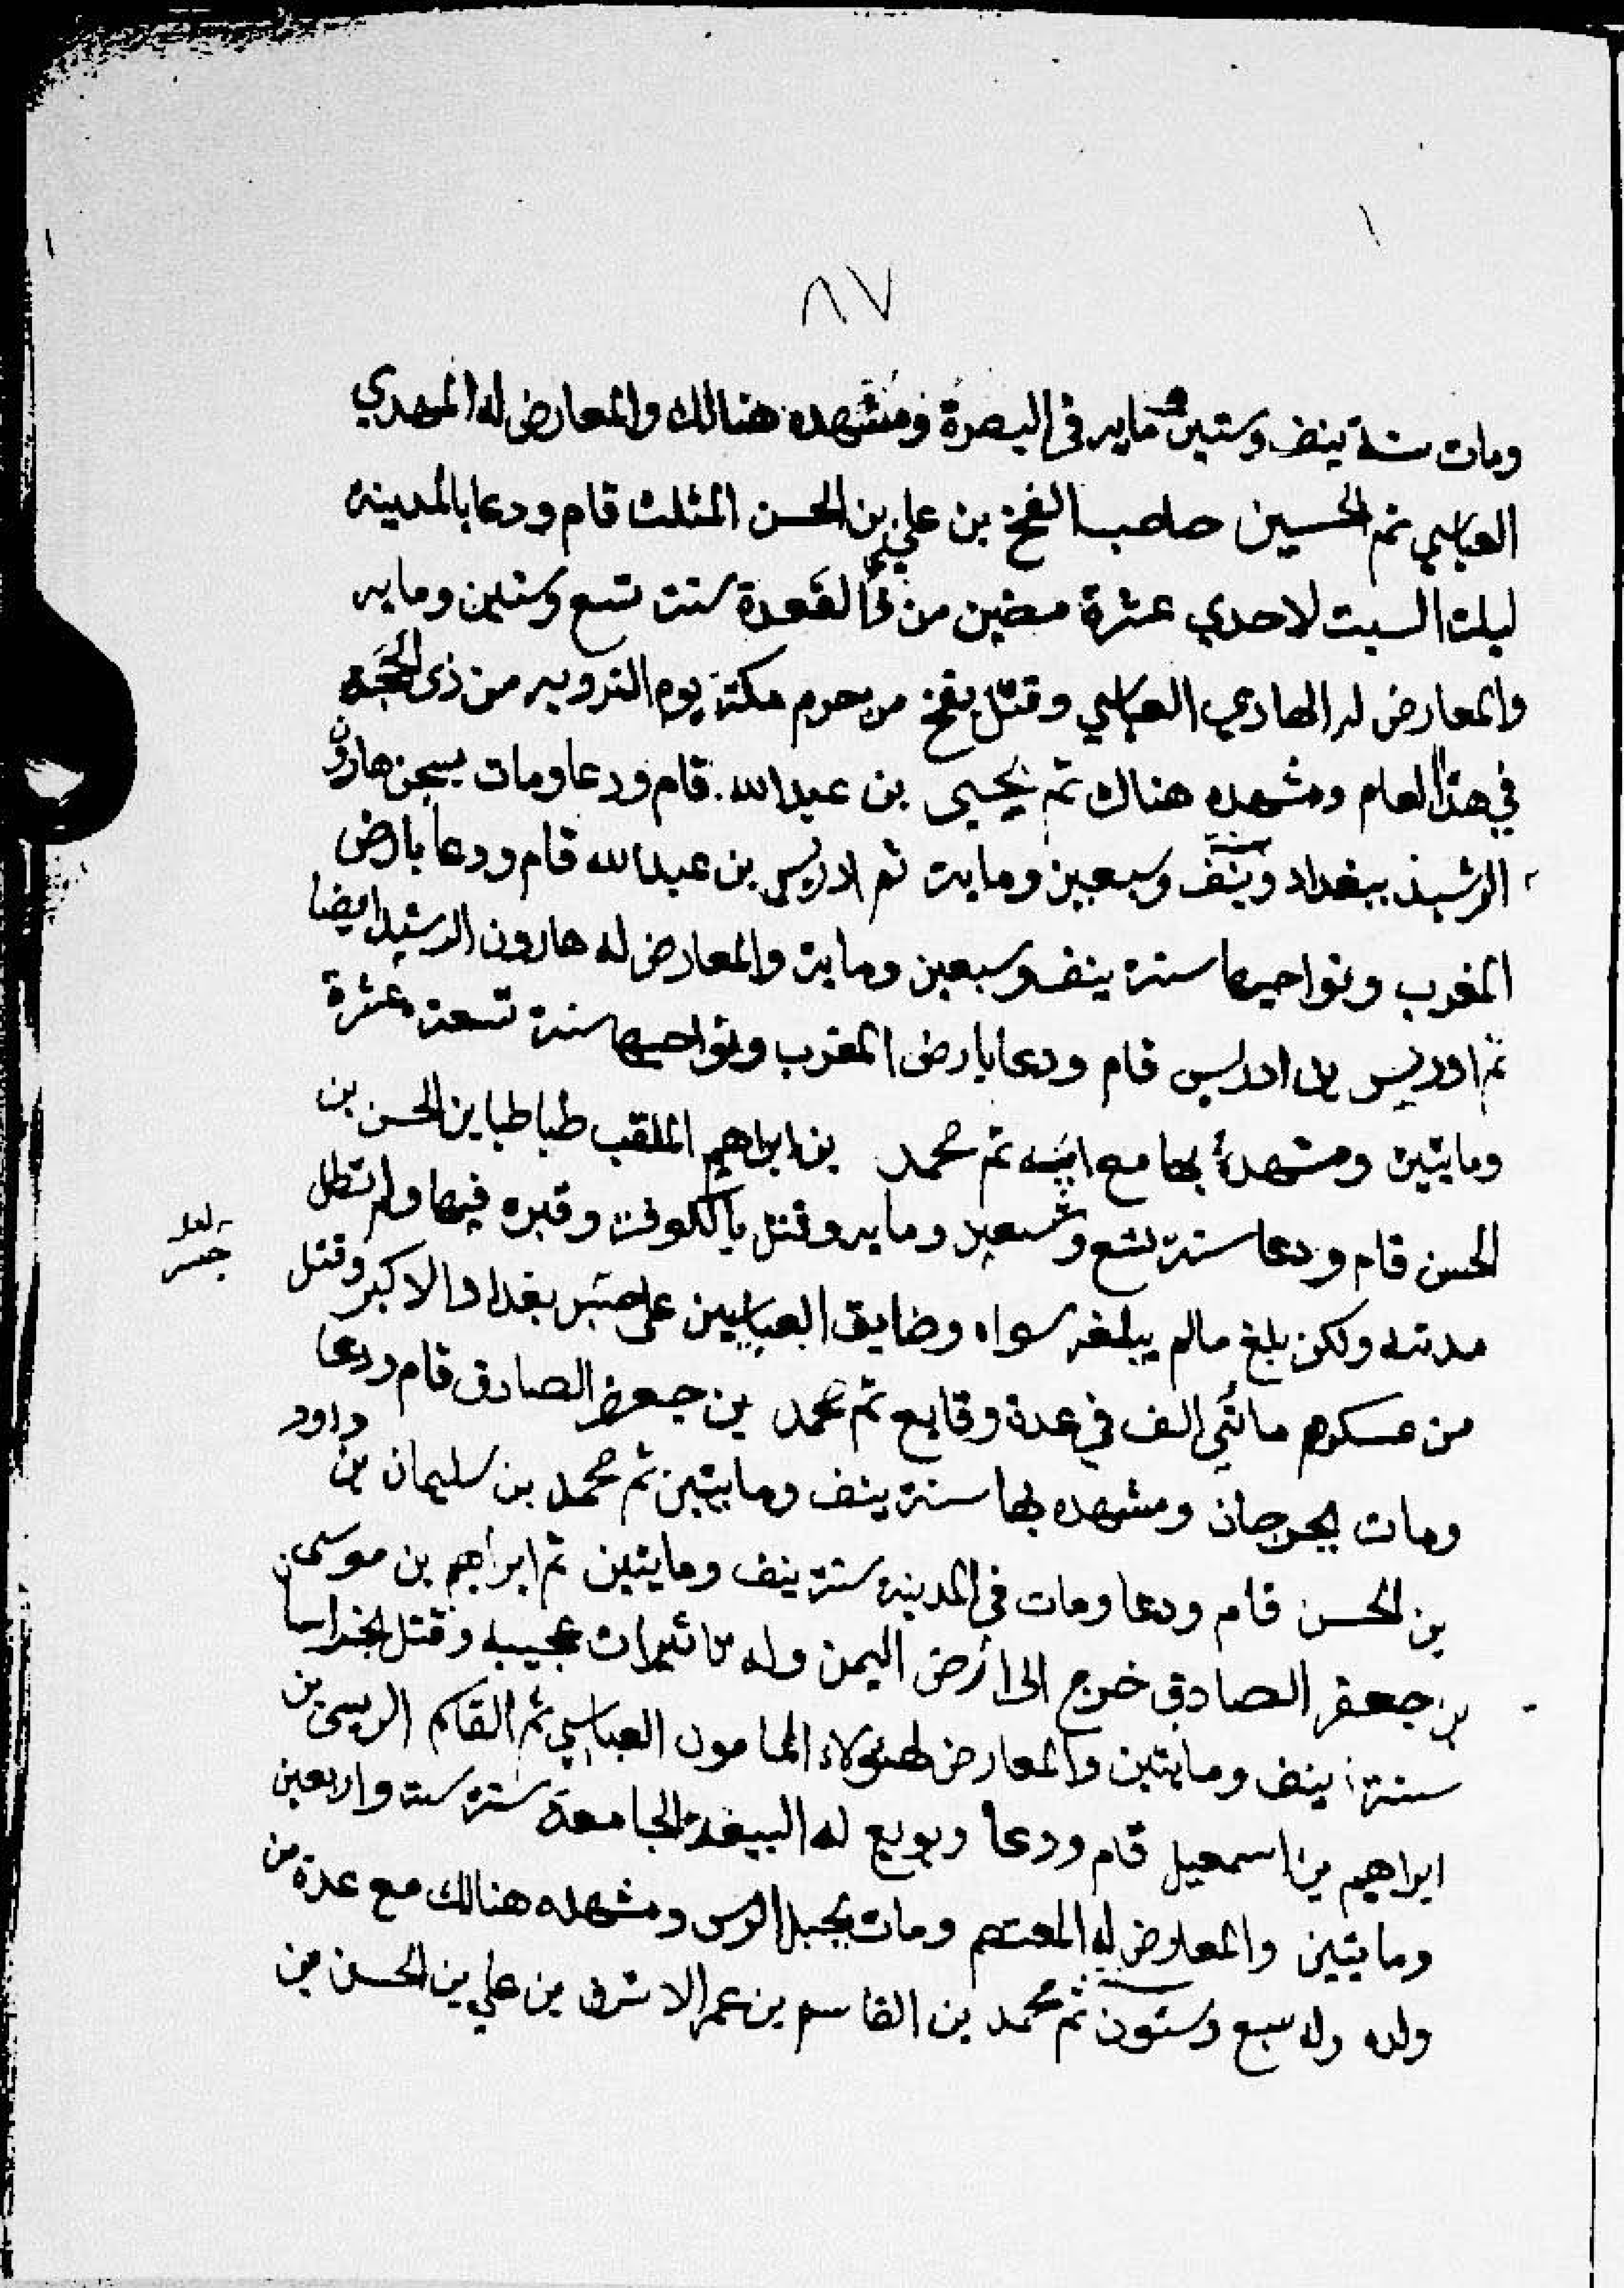 ٨٧
ومات سنة نيف وستين ومايه في البصرة ومشهده هنالك والمعارض له المهدي
العباسي ثم الحسين صاحب الفخ بن علي بن الحسن المثلث قام ودعا بالمدينة
ليلة السبت لاحدي عشرة مضين من ذي القعدة سنة تسع وستين ومايه
والمعارض له الهادي العباسي وقتل بفخ من حرم مكة يوم الترويه من ذي الحجة
في هذا العام ومشهده هناك ثم يحيى بن عبدالله قام ودعا ومات بسجن هارون
الرشيد ببغداد سنة نيف وسبعين وماية ثم ادريس بن عبدالله قام ودعا بارض
المغرب ونواحيها سنة نيف وسبعين وماية والمعارض له هارون الرشيد ايضا
ثم ادريس بن ادريس قام ودعا بارض المغرب ونواحيها سنة تسعة عشرة
ومايتين ومشهده بها مع ابيه ثم محمد بن ابراهيم الملقب طباطبا بن الحسن بن
الحسن قام ودعا سنة تسع وتسعين ومايه وقتل بالكوفة وقبره فيها ولم تطل
مدته ولكن بلغ مالم يبلغه سواه وضايق العباسيين على جسر بغداد الاكبر وقتل
لعله جسر
من عسكرهم مائتي الف في عدة وقايع ثم محمد بن جعفر الصادق قام ودعا
ومات بجرجان ومشهده بها سنة نيف ومايتين ثم محمد بن سليمان بن داود
بن الحسن قام ودعا ومات في المدينة سنة نيف ومايتين ثم ابراهيم بن موسى
بن جعفر الصادق خرج الى ارض اليمن وله تاثيرات عجيبه وقتل بخراسان
سنة نيف ومايتين والمعارض لهئولاء المامون العباسي ثم القاسم الرسي بن
ابراهيم بن اسمعيل قام ودعا وبويع له البيعة الجامعة سنة ست واربعين
ومايتين والمعارض له المعتصم ومات بجبل الرس ومشهده هنالك مع عدة من
ولده وله سبع وستون ثم محمد بن القاسم بن عمر الاشرف بن علي بن الحسن بن